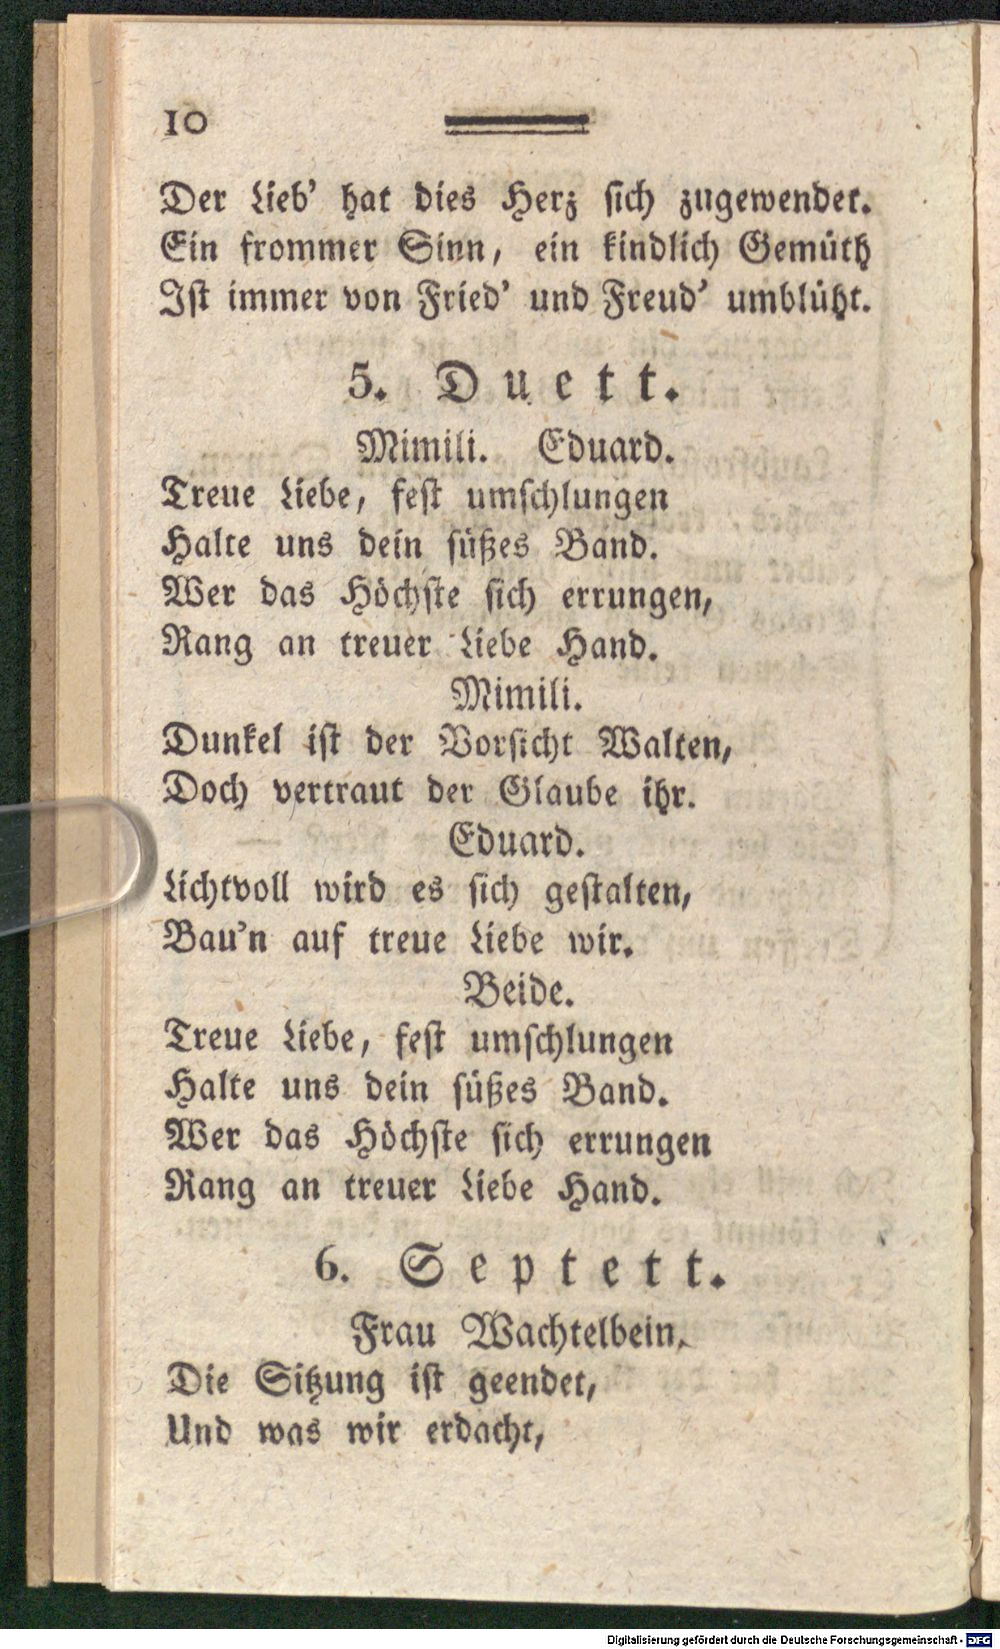 10
Der Lieb' hat dies Herz sich zugewendet.
Ein frommer Sinn, ein kindlich Gemüth
Ist immer von Fried' und Freud' umblüht.
5. Duett.
Mimili. Eduard.
Treue Liebe, fest umschlungen
Halte uns dein süßes Band.
Wer das Höchste sich errungen,
Rang an treuer Liebe Hand.
Mimili.
Dunkel ist der Vorsicht Walten,
Doch vertraut der Glaube ihr.
Eduard.
Lichtvoll wird es sich gestalten,
Bau'n auf treue Liebe wir.
Beide.
Treue Liebe, fest umschlungen
Halte uns dein süßes Band.
Wer das Höchste sich errungen
Rang an treuer Liebe Hand.
6. Septett.
Frau Wachtelbein.
Die Sitzung ist geendet,
Und was wir erdacht,
Digitalisierung gefördert durch die Deutsche Forschungsgemeinschaft - DFG